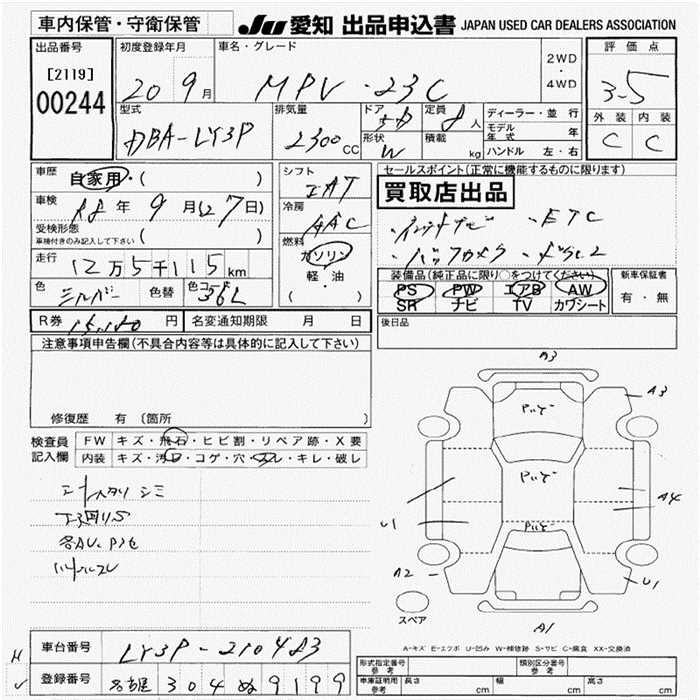 車内保管・守衛保管 JU 愛知 出品申込書 JAPAN USED CAR DEALERS ASSOCIATION
出品番号
[2119]
00244
初度登録年月
20 9月
車名・グレード
MPV ・23C
2WD
・
4WD
評価点
3-5
外装 内装
C C
型式
DBA-LY3P
排気量
2300 CC
ドア
5D
形状
W
定員
8人
積載
kg
ディーラー・並行
モデル年式 年
ハンドル 左・右
車歴
自家用・( )
車検
18年 9月(27日)
受検形態
車検付きのみ記入して下さい ( )
走行
12万5千115km
色
シルバー
色替
色コード
36L
シフト
IAT
冷房
AAC
燃料
ガソリン
軽・油
( )
セールスポイント(正常に機能するものに限ります)
買取店出品
・インダッシュナビ ・ETC
・バックカメラ
装備品(純正品に限り○をつけてください)
PS PW エアB AW
SR ナビ TV カワシート
新車保証書
有・無
R券 円
名変通知期限 月 日
後日品
注意事項申告欄(不具合内容等は具体的に記入して下さい)
修復歴 有 〔箇所 〕
検査員記入欄
FW キズ・飛石・ヒビ割・リペア跡・X要
内装 キズ・汚れ・コゲ・穴・スレ・キレ・破レ
シートヘタリ シミ
各AU、Pノセ
ハンドルスレ
A3
A3
A4
U1
A2
U1
A1
スペア
A-キズ E-エクボ U-凹み W-補修跡 S-サビ C-腐食 XX-交換済
車台番号
LY3P-210483
登録番号
名古屋 304 ぬ 9199
形式指定番号 参考
類別区分番号 参考
車庫証明用 参考 長さ cm 幅 cm 高さ cm